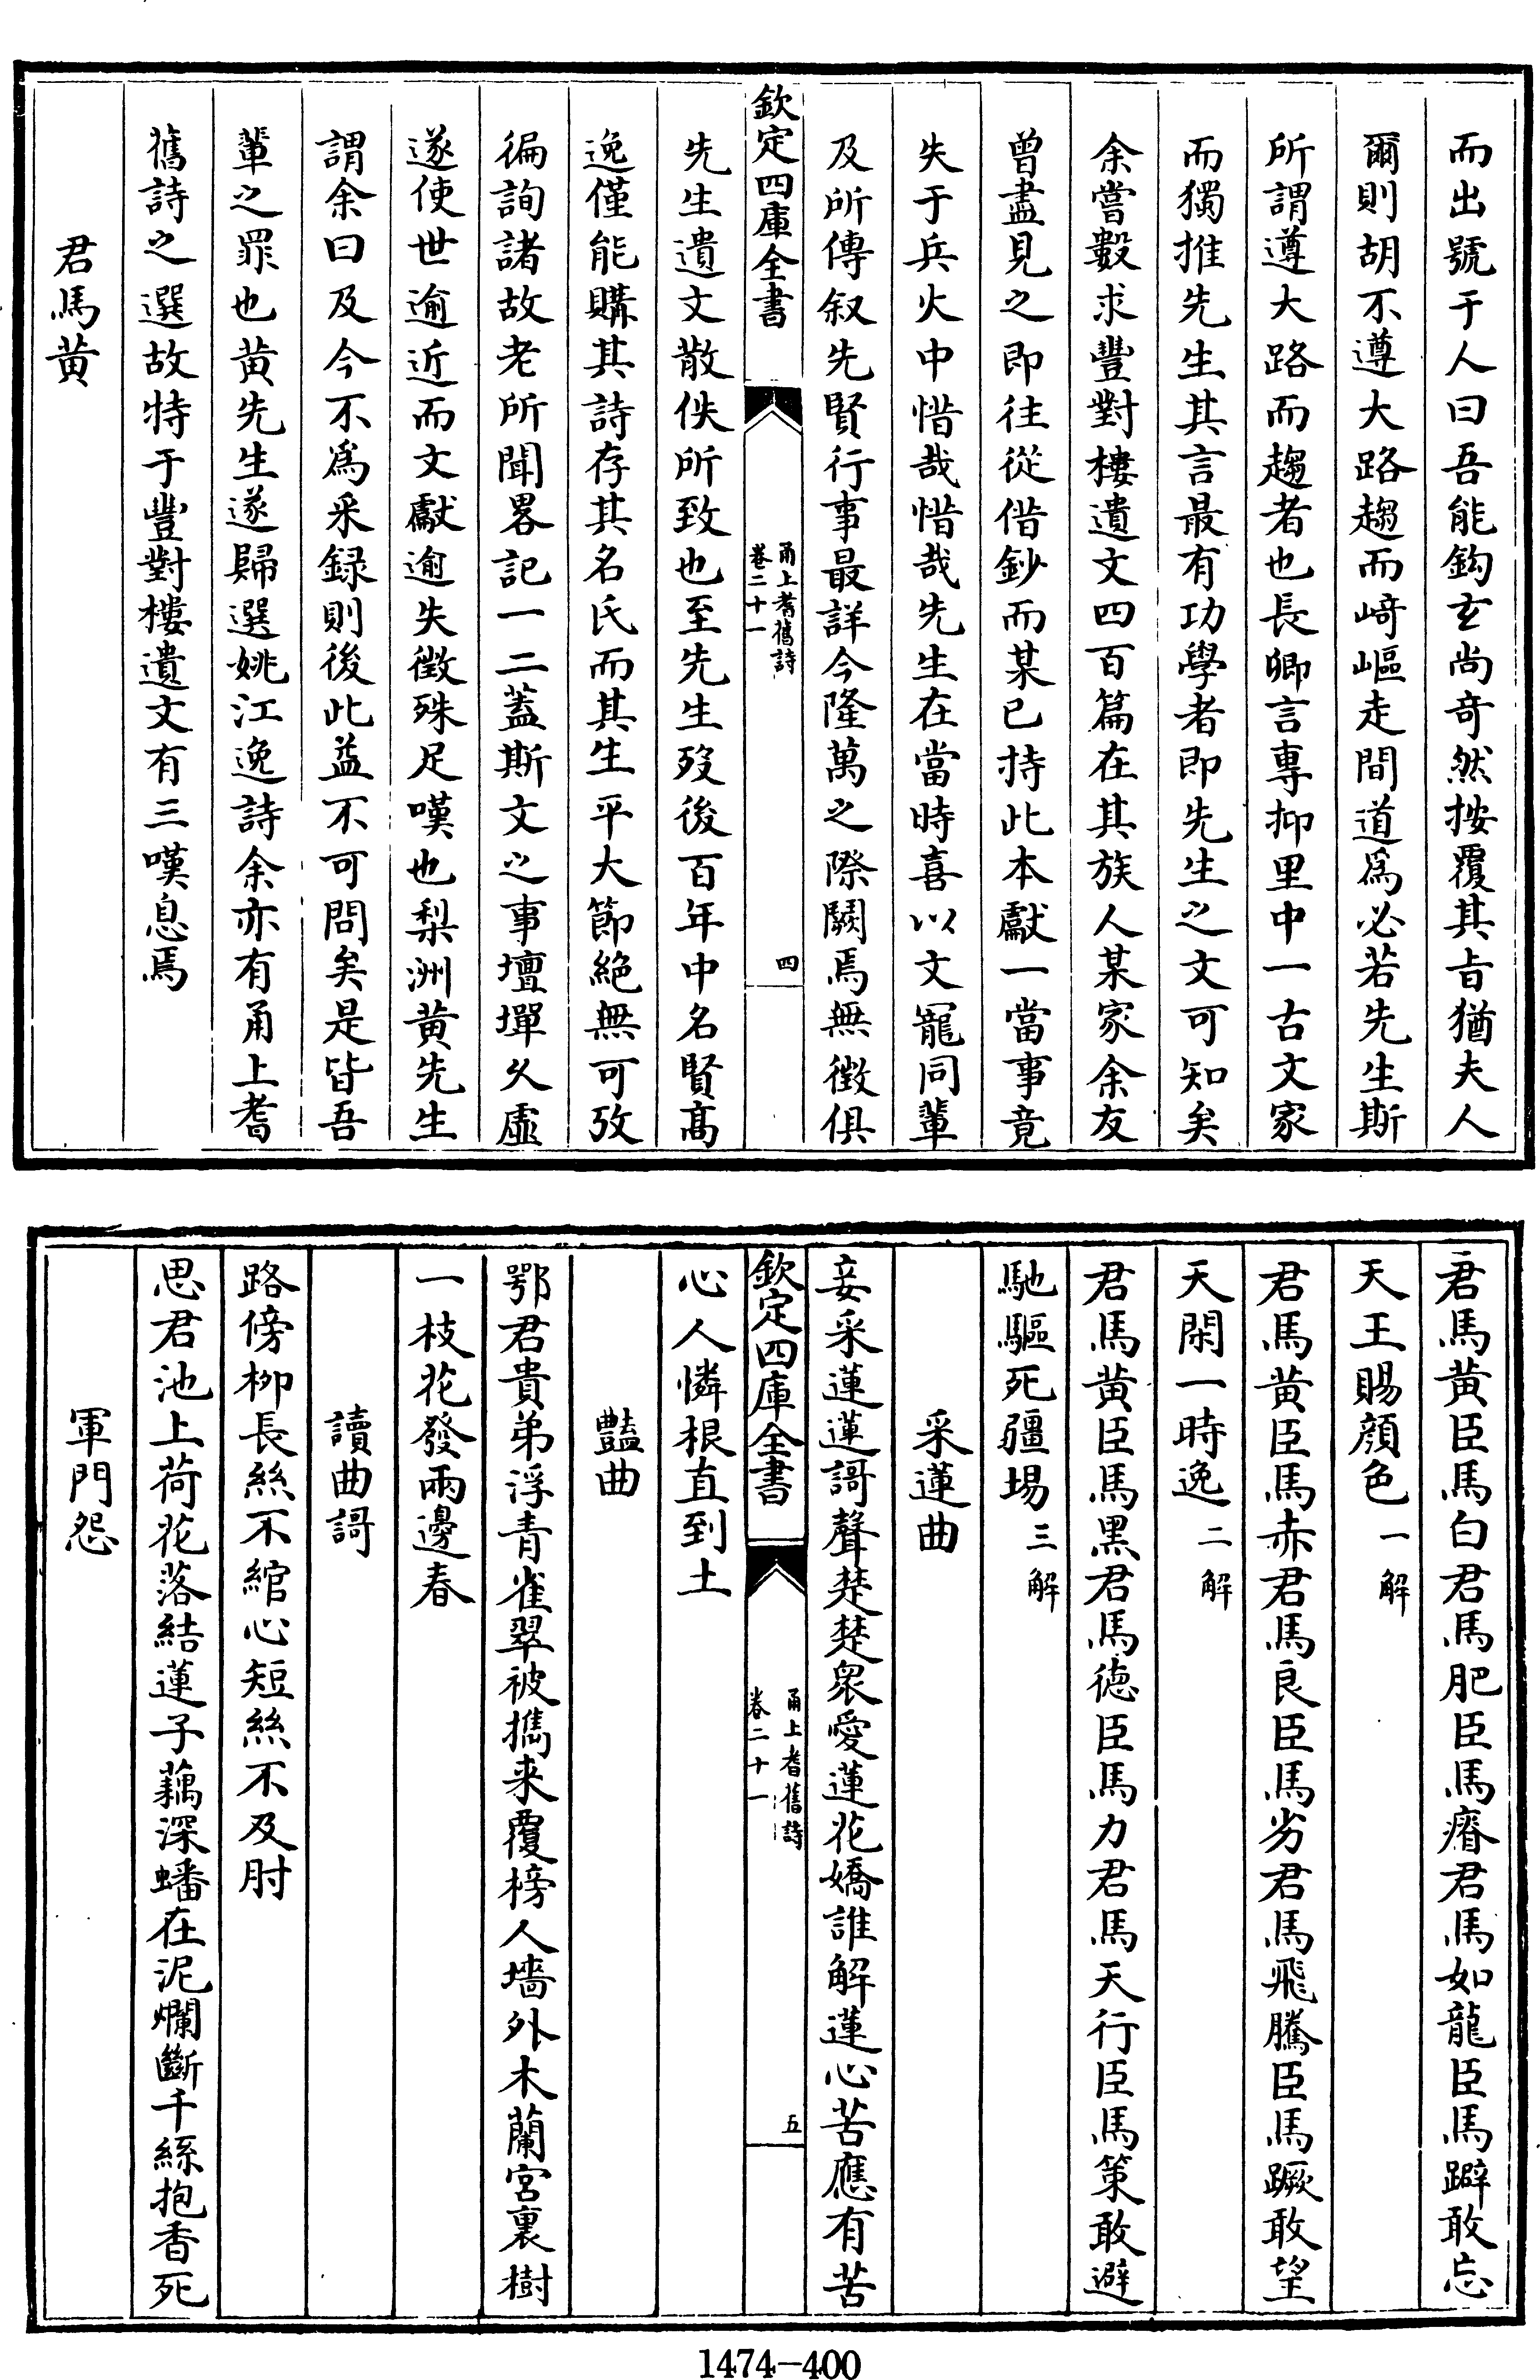 而出號于人曰吾能鈎玄尚奇然按覆其旨猶夫人
爾則胡不遵大路趨而﨑嶇走間道為必若先生斯
所謂遵大路而趨者也長卿言專抑里中一古文家
而獨推先生其言最有功學者即先生之文可知矣
余嘗數求豐對樓遺文四百篇在其族人某家余友
曾盡見之即往從借鈔而某已持此本獻一當事竟
失于兵火中惜哉惜哉先生在當時喜以文寵同輩
及所傳叙先賢行事最詳今隆萬之際闕焉無徴俱
欽定四庫全書
甬上耆舊詩
卷二十一
四
先生遺文散佚所致也至先生歿後百年中名賢髙
逸僅能購其詩存其名氏而其生平大節絶無可攷
徧詢諸故老所聞畧記一二蓋斯文之事壇墠久虚
遂使世逾近而文獻逾失徴殊足嘆也梨洲黄先生
謂余曰及今不為采録則後此益不可問矣是皆吾
輩之罪也黄先生遂歸選姚江逸詩余亦有甬上耆
舊詩之選故特于豐對樓遺文有三嘆息焉
君馬黄
君馬黄臣馬白君馬肥臣馬瘠君馬如龍臣馬躃敢忘
天王賜顔色一解
君馬黄臣馬赤君馬良臣馬劣君馬飛騰臣馬蹶敢望
天閑一時逸二解
君馬黄臣馬黑君馬徳臣馬力君馬天行臣馬策敢避
馳驅死疆埸三解
采蓮曲
妾采蓮蓮謌聲楚楚衆愛蓮花嬌誰解蓮心苦應有苦
欽定四庫全書
甬上耆舊詩
卷二十一
五
心人憐根直到土
豔曲
鄂君貴弟浮青雀翠被擕来覆榜人墻外木蘭宫裏樹
一枝花發兩邊春
讀曲謌
路傍柳長絲不綰心短絲不及肘
思君池上荷花落結蓮子藕深蟠在泥爛斷千絲抱香死
軍門怨
1474-400